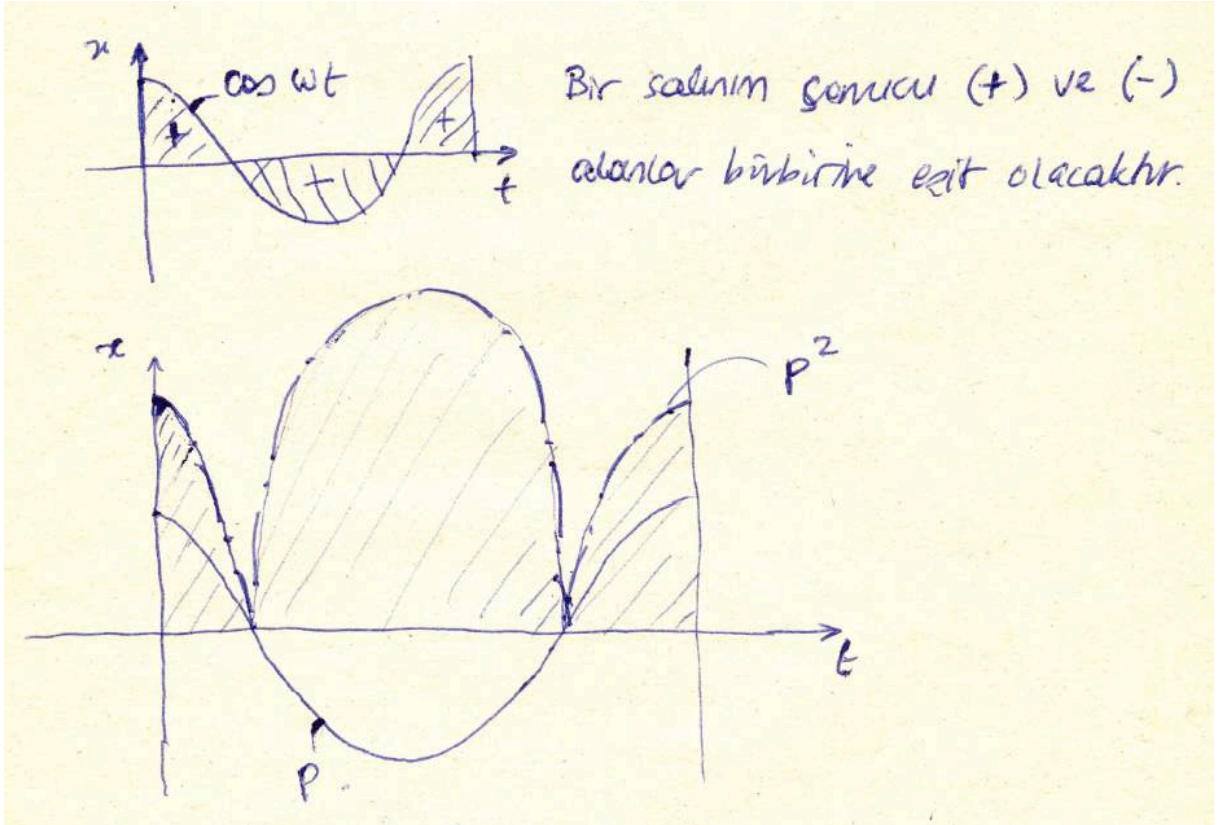 x
cos ωt
+
+
+
t
Bir salınım sonucu (+) ve (-)
alanlar birbirine eşit olacaktır.
x
p²
t
p